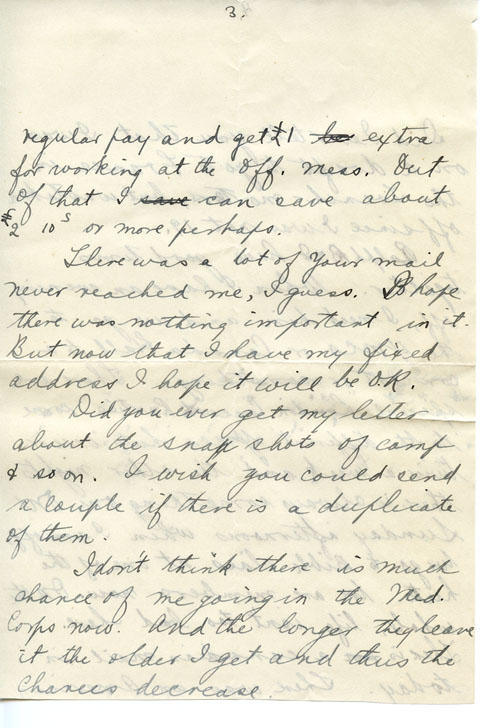 3.
regular pay and get £1 be extra
for working at the Off. mess. Out
of that I save can save about
£2 10s or more perhaps.
There was a lot of your mail
never reached me, I guess. I hope
there was nothing important in it.
But now that I have my fixed
address I hope it will be OK.
Did you ever get my letter
about the snap shots of camp
& so on. I wish you could send
a couple if there is a duplicate
of them.
I don't think there is much
chance of me going in the Med.
Corps now. And the longer they leave
it the older I get and thus the
chances decrease.